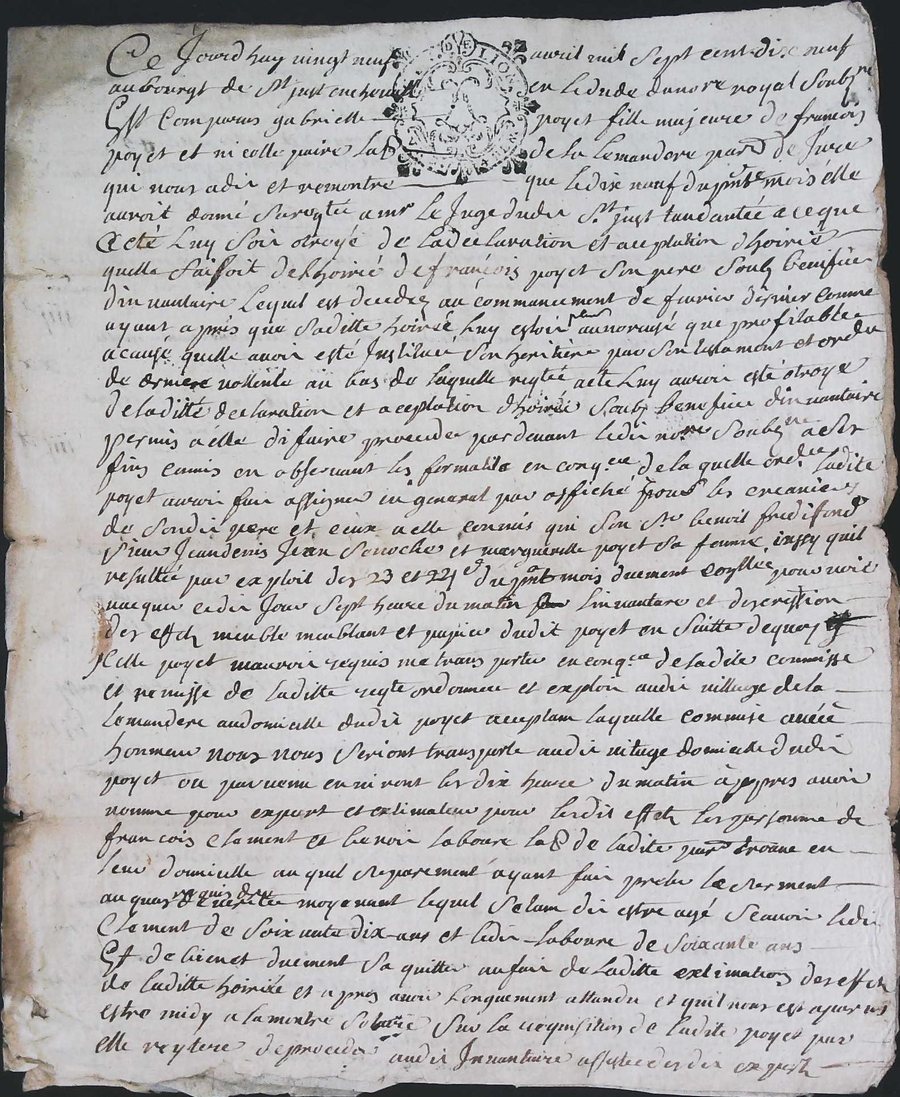 Ce Jourdhuy vingt neuf avril mil sept cent dix neuf
au bourgt de St just en chevallet en letude de nore royal soubzne
Est comparus gabrielle poyet fille majeure de francois
poyet et nicolle paire de la Lemandere parr de Jure
qui nous a dit et remontré que le dix neuf du pnt mois elle
auroit donné sa reqte a mr le Juge dudit St just tandantée a ce que
acte luy soit otroyé de la declaration et aceptation dhoirie
quelle faisoit de lhoirié de francois poyet son pere soubz benifice
dinvantaire lequel est decedez au commancement de fevrier dernier comme
ayant apris que laditte hoirié luy estoit plus onoreuse que profitable
a cause quelle avoit esté Institueé son heritiere par son testament et ordre
de derniere vollonte au bas de laquelle reqtee acte luy auroit esté otroye
de laditte declaration et aceptation dhoirié soubz benefice dinvantaire
permis a elle di faire proceder pardevant ledit nore soubzne a ses
fins commis en observant les formalité en conqce de laquelle ordce ladite
poyet auroit fait assigner in general par affiche tous les creanciers
de sondit pere et ceux a elle connus qui son sr benoit
sieur Jean denis Jean et margueritte poyet sa femme insy quil
resulte par exploit des 23 et 24e du pnt mois duement pour voir
vacquer cedit Jour sept heure du matin linvantaire et description
des effets meuble meublant et papier dudit poyet en suitte dequoy
Jcelle poyet mauroit requis me transporter en conqce de ladite commise
et remisse de laditte reqte ordonnce et exploit audit village de la
Lemandere au domicille dudit poyet aceptant laquelle commise avec
honneur nous nous seriont transporte audit vilage domicille dudit
poyet ou parvenu environt les dix heure du matin apres avoir
nomme pour expert et estimateur pour lesdit effets les personne de
francois clement et benoit laboure lab de ladite parr trouve en
leur domicille auquel separement ayant fait preter le serment
au quas requis de verité moyenant lequel se sont dit estre agé scavoir ledit
clement de soixante dix ans et ledit laboure de soixante ans
Et de bien et duement sa quitter au fait de laditte extimation des effets
de laditte hoirié et apres avoir longuement attandu et quil nous est aparu
estre midy a la montre solaire sur la requisition de ladite poyet par
elle reytere de proceder audit Invantaire assistee desdit expertz